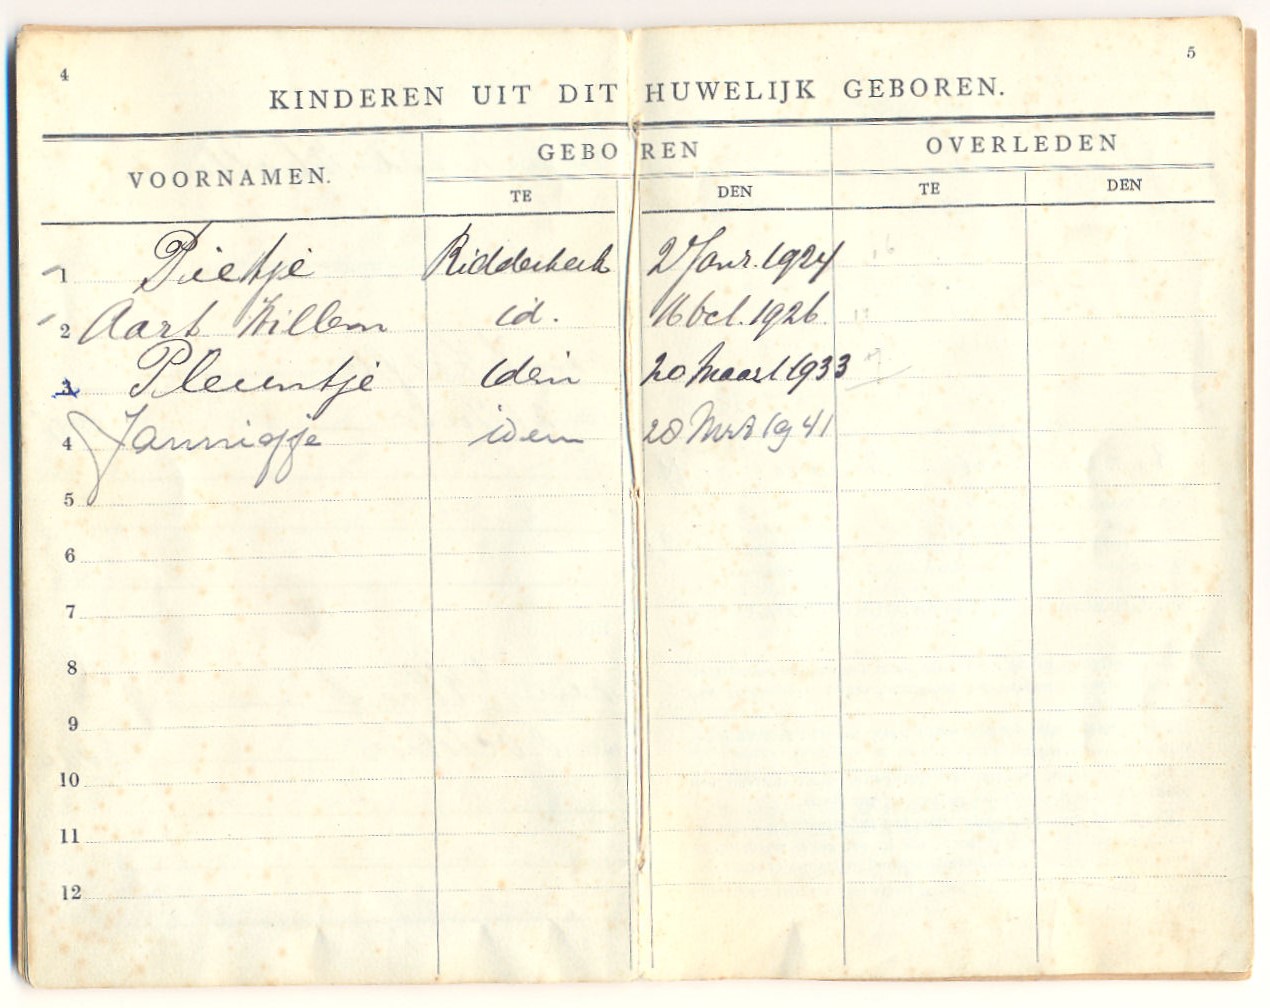 4
5
KINDEREN UIT DIT HUWELIJK GEBOREN.
VOORNAMEN.
GEBOREN
OVERLEDEN
TE DEN TE DEN
1 Pietje Ridderkerk 2 Janr. 1924
2 Aart Willem id. 16 Oct. 1926.
3 Pleuntje Idem 20 Maart 1933
4 Jannigje idem 28 Mrt 1941
5
6
7
8
9
10
11
12